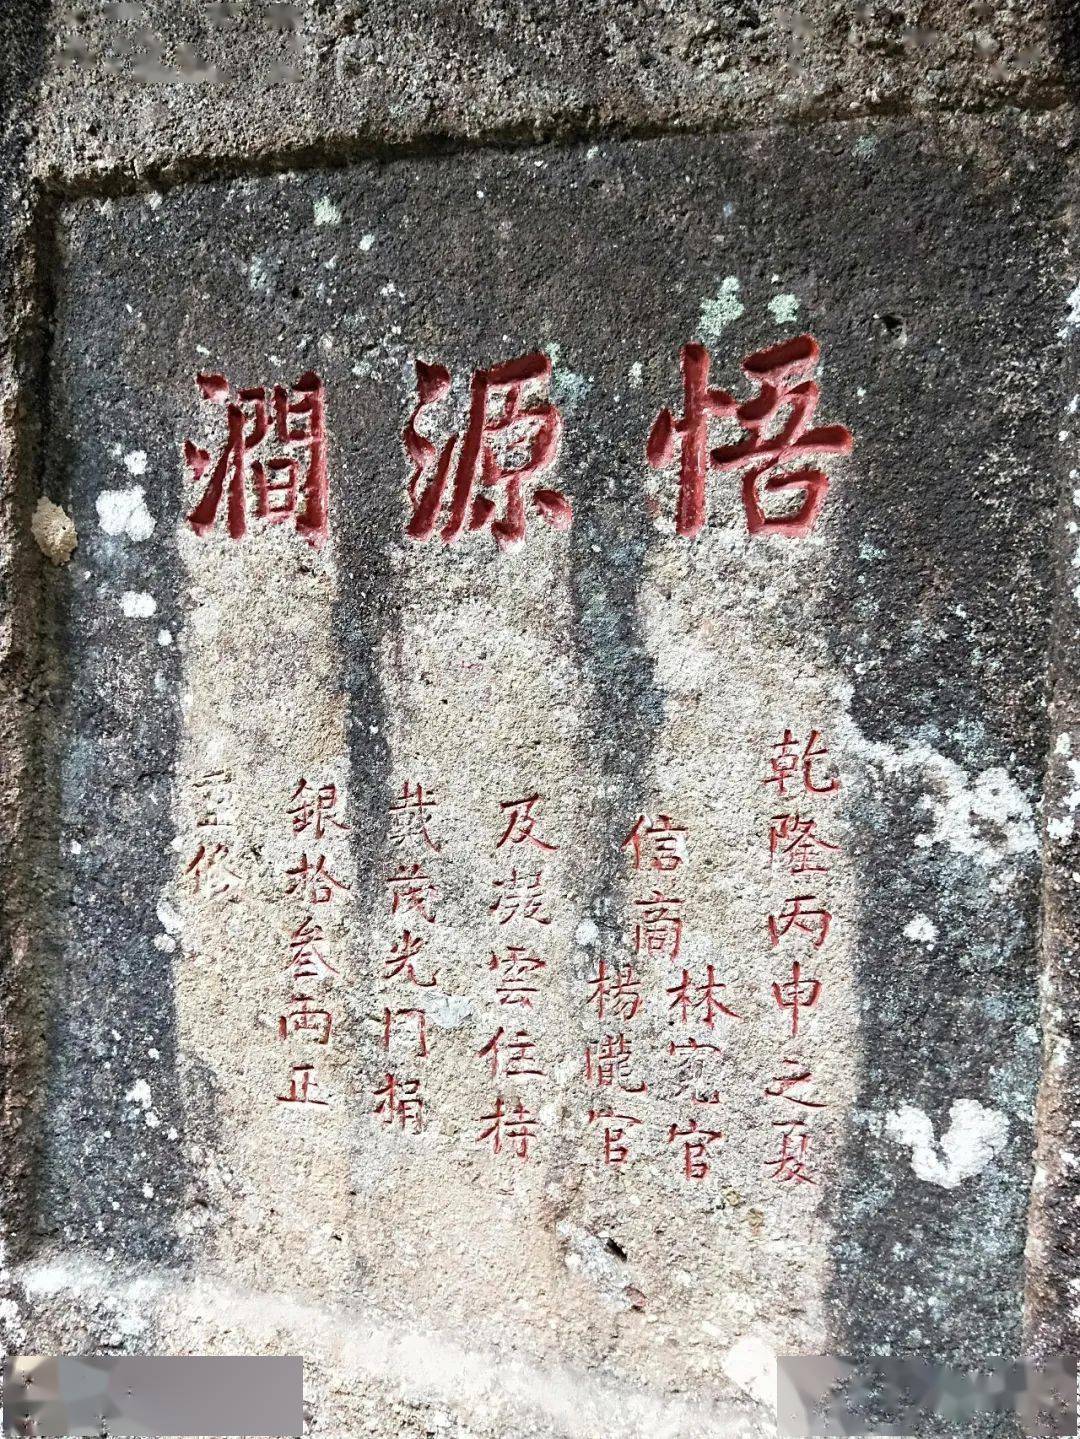 悟源澗
乾隆丙申之夏
信商
林寬官
楊巃官
及凝雲住持
戴茂光門捐
銀拾叁両正
重修